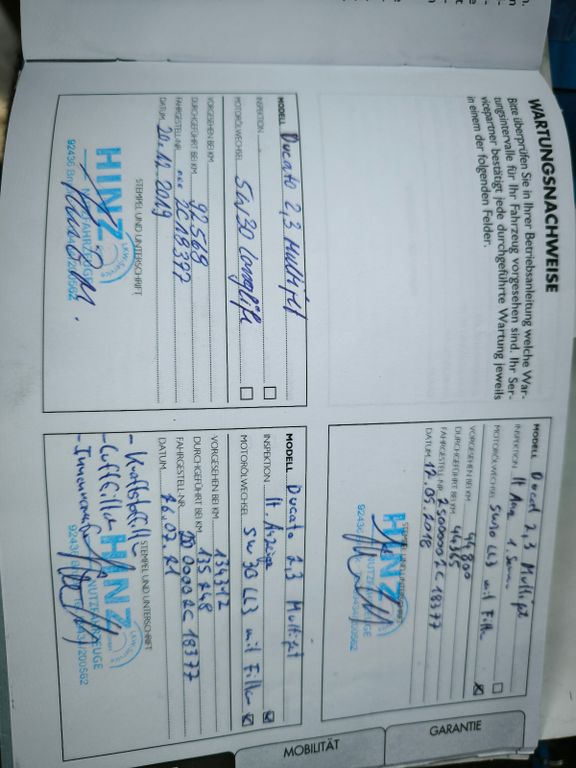 WARTUNGSNACHWEISE
Bitte überprüfen Sie in Ihrer Betriebsanleitung welche War-
tungsintervalle für Ihr Fahrzeug vorgesehen sind. Ihr Ser-
vicepartner bestätigt jede durchgeführte Wartung jeweils
in einem der folgenden Felder.
MODELL Ducato 2,3 Multijet
INSPEKTION
MOTORÖLWECHSEL 5W30 Longlife
VORGESEHEN BEI KM
DURCHGEFÜHRT BEI KM 92 569
FAHRGESTELL-NR. 2C 18397
DATUM 20.12.2019
STEMPEL UND UNTERSCHRIFT
HINZ
LKW-Service
MODELL Ducat 2,3 Multijet
INSPEKTION lt. 1.
MOTORÖLWECHSEL 5W30 LL3 mit Filter
VORGESEHEN BEI KM 44800
DURCHGEFÜHRT BEI KM 44365
FAHRGESTELL-NR. 2500002C 18377
DATUM 12.05.2018
HINZ
NUTZFAHRZEUGE
MODELL Ducato 2,3 Multijet
INSPEKTION lt. Anzeige
MOTORÖLWECHSEL 5W30 LL3 mit Filter
VORGESEHEN BEI KM 134312
DURCHGEFÜHRT BEI KM 135 248
FAHRGESTELL-NR. 00002C 18377
DATUM 26.07.21
STEMPEL UND UNTERSCHRIFT
- Kraftstofffilter
- Luftfilter
- Innenraum
HINZ
LKW-Service
NUTZFAHRZEUGE
GARANTIE
MOBILITÄT